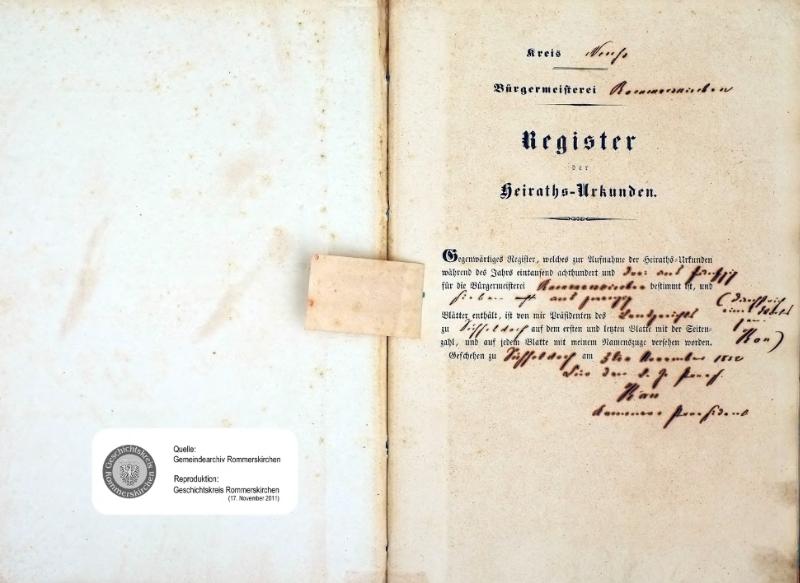 Quelle:
Gemeindearchiv Rommerskirchen
Reproduktion:
Geschichtskreis Rommerskirchen
(17. November 2011)
Geschichtskreis
Rommerskirchen
Kreis Neuß
Bürgermeisterei Rommerskirchen
Register
der
Heiraths-Urkunden.
Gegenwärtiges Register, welches zur Aufnahme der Heiraths-Urkunden
während des Jahrs eintausend achthundert und drei und fünfzig
für die Bürgermeisterei Rommerskirchen bestimmt ist, und
sieben und zwanzig
Blätter enthält, ist von mir Präsidenten des Landgerichts
zu Düsseldorf auf dem ersten und letzten Blatte mit der Seiten-
zahl, und auf jedem Blatte mit meinem Namenszuge versehen worden.
Geschehen zu Düsseldorf am November 1852
Für den
Kammer Praesident